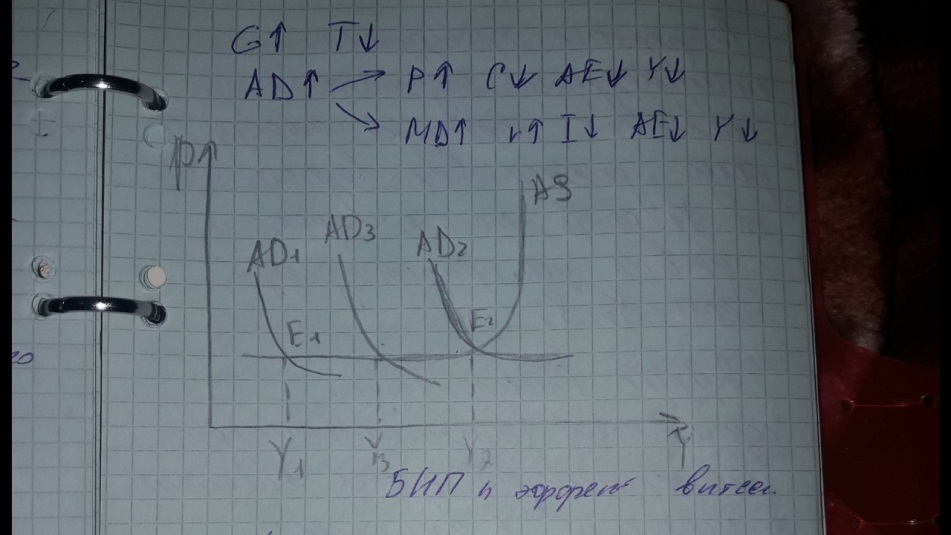 G↑ T↓
AD↑ → P↑ C↓ AE↓ Y↓
→ MD↑ r↑ I↓ AE↓ Y↓
P
AS
AD1 AD3 AD2
E1 E2
Y1 Y3 Y2 Y
БНП и эффект